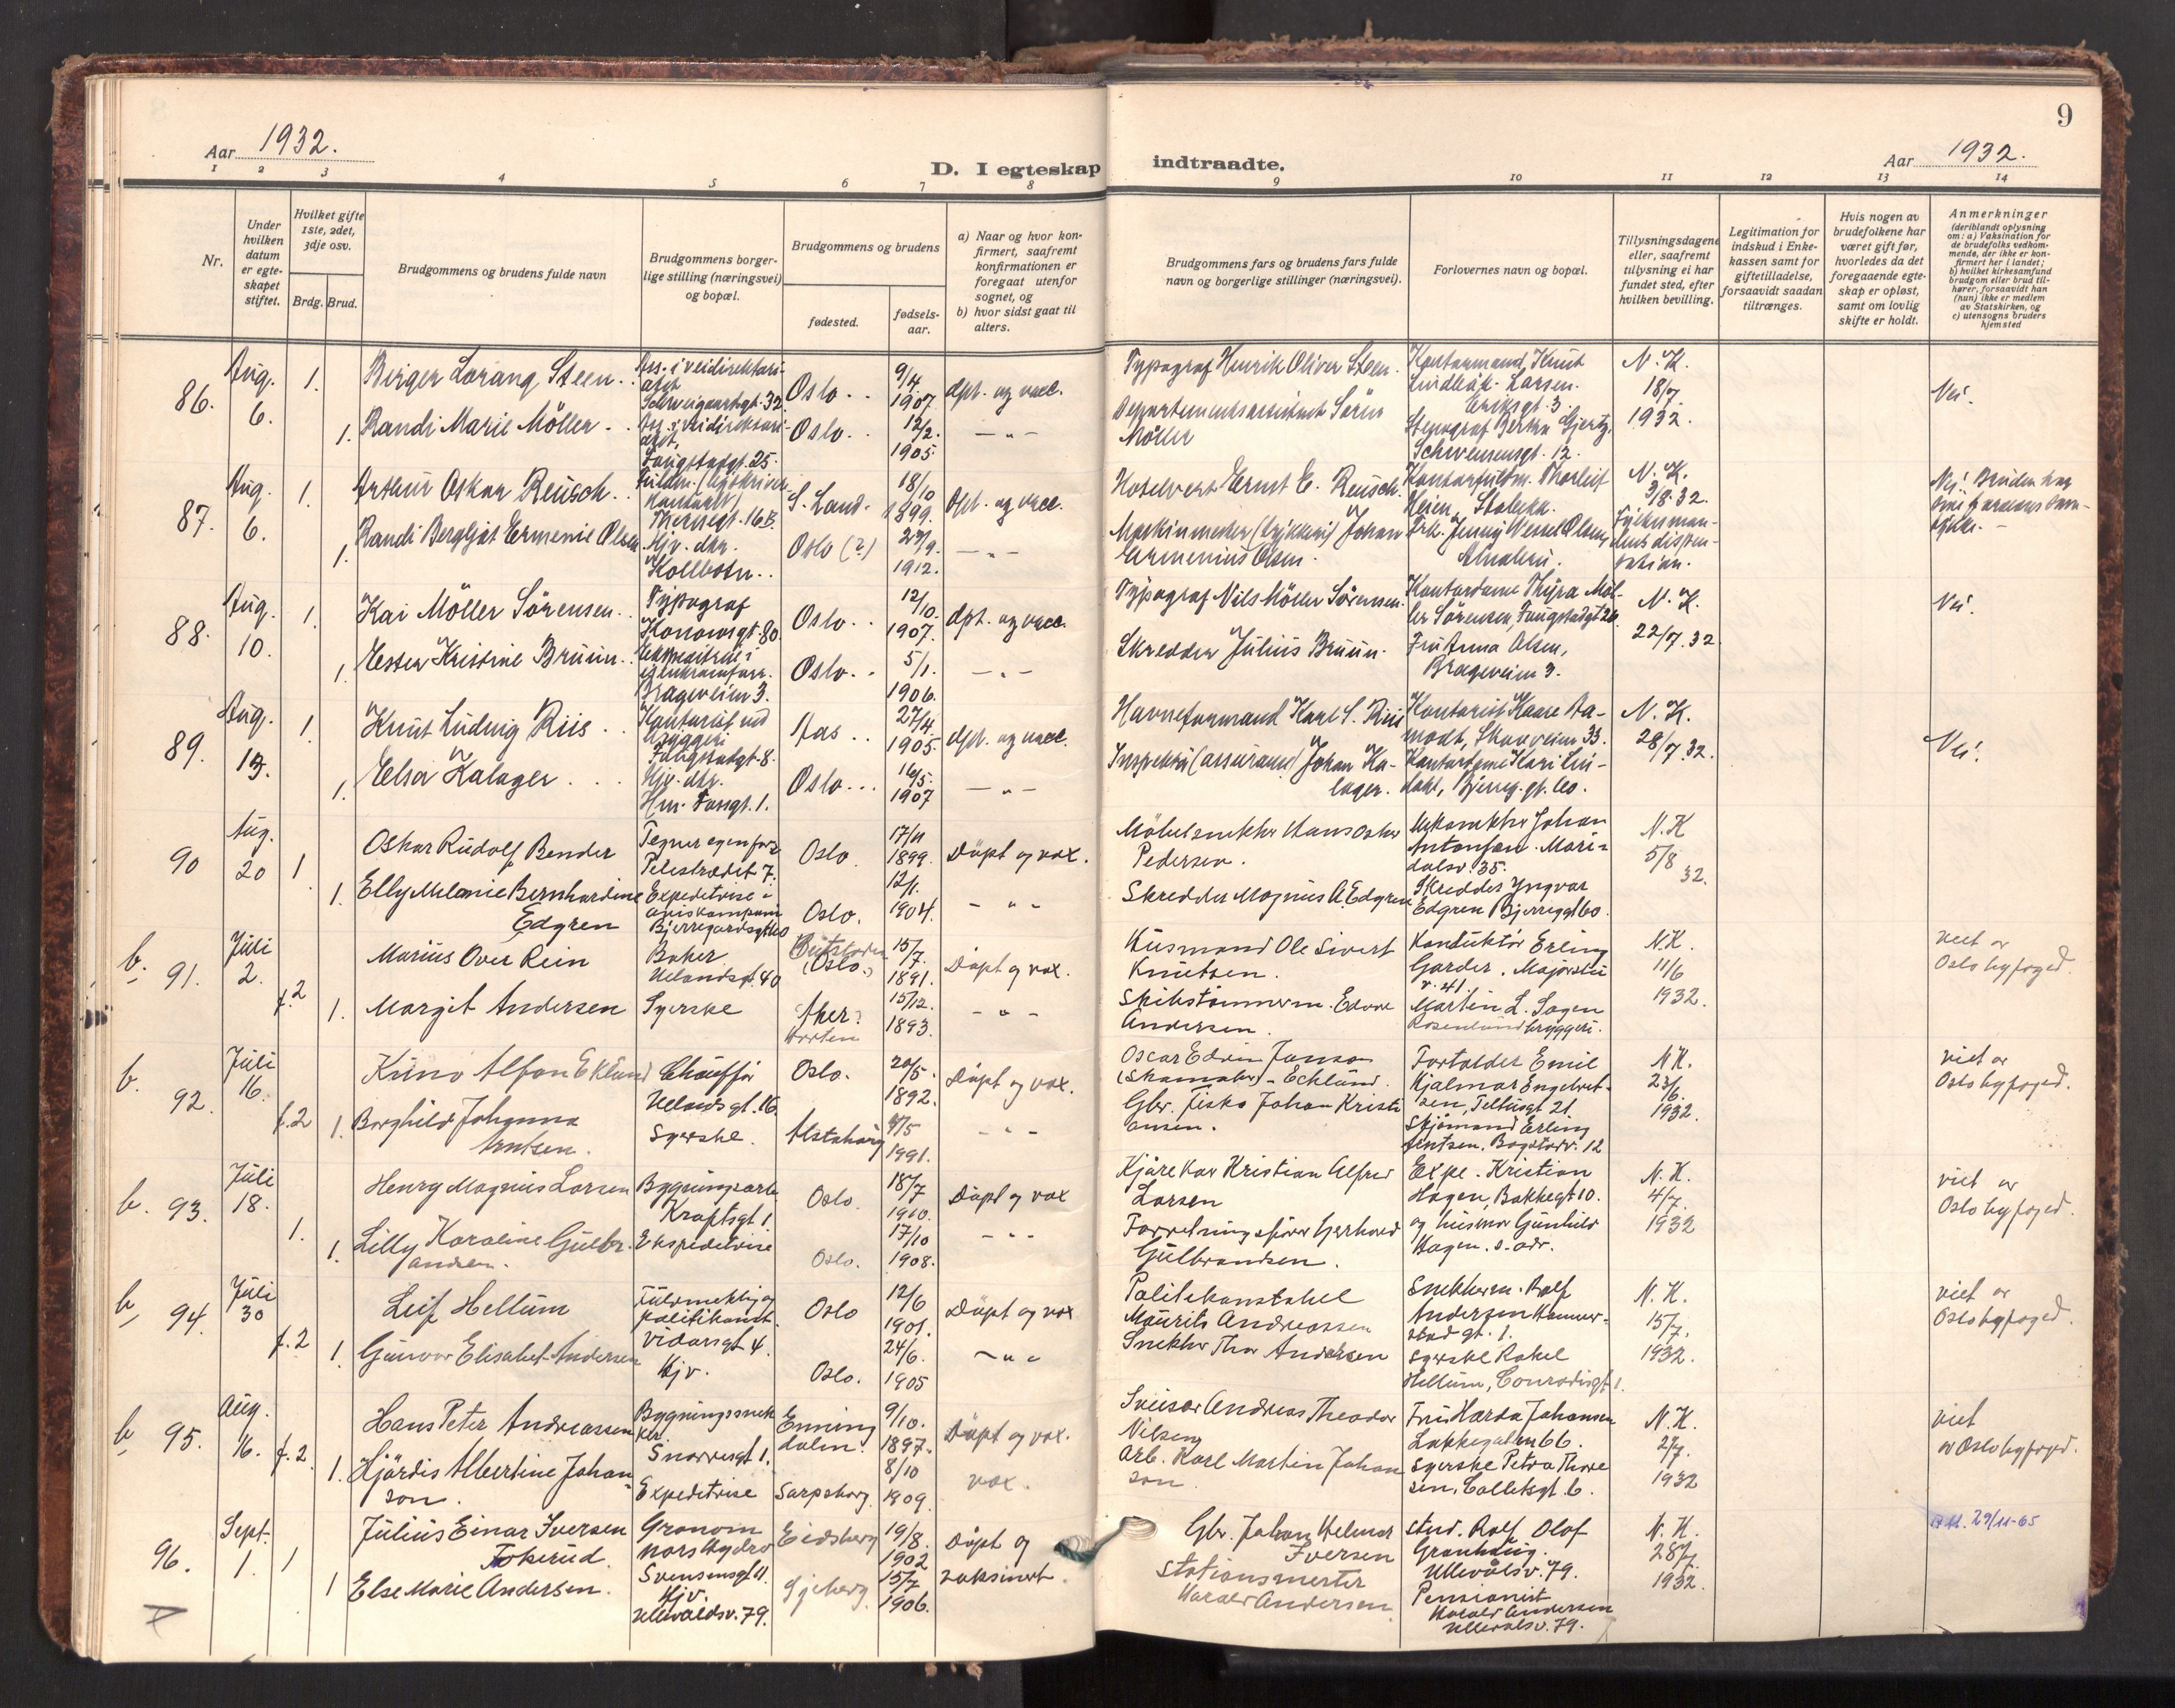 9
Aar 1932.
D. I egteskap indtraadte.
Aar 1932.
1 2 3 4 5 6 7 8 9 10 11 12 13 14
Nr.
Under hvilken datum er egteskapet stiftet.
Hvilket gifte 1ste, 2det, 3dje osv.
Brdg. Brud.
Brudgommens og brudens fulde navn
Brudgommens borgerlige stilling (næringsvei) og bopæl.
Brudgommens og brudens
fødested.
fødselsaar.
a) Naar og hvor konfirmert, saafremt konfirmationen er foregaat utenfor sognet, og
b) hvor sidst gaat til alters.
Brudgommens fars og brudens fars fulde navn og borgerlige stillinger (næringsvei).
Forlovernes navn og bopæl.
Tillysningsdagene eller, saafremt tillysning ei har fundet sted, efter hvilken bevilling.
Legitimation for indskud i Enkekassen samt for giftetilladelse, forsaavidt saadan tiltrænges.
Hvis nogen av brudefolkene har været gift før, hvorledes da det foregaaende egteskap er opløst, samt om lovlig skifte er holdt.
Anmerkninger (deriblandt oplysning om: a) Vaksination for de brudefolks vedkommende, der ikke er konfirmert her i landet; b) hvilket kirkesamfund brudgom eller brud tilhører, forsaavidt han (hun) ikke er medlem av Statskirken, og c) utensogns bruders hjemsted
86. Aug. 6. 1. Birger Lorang Steen. Ass. i veidirektoratet Schweigaardsgt. 32. Oslo 9/4 1907 dpt. og vacc. Typograf Henrik Oliver Steen. Kontormand Knut Lindbäk-Larsen. Eriksgt. 3. N. K. 18/7 1932. Nei.
1. Randi Marie Möller Ass. i veidirektoratet, Fougstadgt. 25. Oslo 12/2. 1905. — " — Departementsassistent Sören Möller Stenograf Bertha Gjertz, Schwensensgt. 12.
87. Aug. 6. 1. Arthur Oskar Reusch Thereses gt. 16 B. S. Land 18/10 1899. dpt. og vacc. Hotelvert Ernst E. Reusch. Thorleif Heien, Stabekk. N. K. 3/8. 32. Nei! Bruden har
1. Randi Bergljot Ermenie Olsen Hjv. dtr. Kollbotn Oslo (?) 23/9. 1912. — " — Maskinmester (trykkeri) Johan Ermenius Olsen. Frk. Jenny Wessel Olsen, Fylkesmandens dispensasion.
88. Aug. 10. 1. Kai Möller Sörensen Typograf Konowsgt. 80. Oslo 12/10. 1907. dpt. og vacc. Typograf Nils Möller Sörensen. Kontordame Thyra Möller Sörensen, Fougstadgt 26. N. K. 22/7. 32 Nei.
1. Ester Kristine Bruun Brageveien 3. Oslo 5/1. 1906. — " — Skredder Julius Bruun. Fru Anna Olsen, Brageveien 3.
89. Aug. 13. 1. Knut Ludvig Riis Kontorist ved bryggeri Fougstadgt. 8. Aas 27/4. 1905. dpt. og vacc. Havneformand Karl S. Riis Kontorist Kaare Aamodt, Skovveien 33. N. K. 28/7. 32. Nei!
1. Elsa Kalager Hjv. dtr. Oslo 16/5. 1907 — " — Inspektör (assurance) Johan Kalager. Kontordame Kari Lindahl, Bjerreg. gt. 60.
90 Aug. 20 1 Oskar Rudolf Bender Tegner egen forr. Pilestrædet 7. Oslo 17/11 1899. Döpt og vax. Möbelsnekker Hans Oskar Pedersen. Mekaniker Johan Antonsen. Maridalsv. 35. N. K 5/8 32.
1. Elly Melanie Bernhardine Edgren Expeditrise i aviskompani Bjerregaardsgt 60 Oslo. 12/1. 1904. - " - Skredder Magnus A. Edgren Skredder Yngvar Edgren Bjerreggt 60.
b. 91. Juli 2. f. 2 Marius Over Rein Baker Uelandsgt. 40 Beitstaden (Oslo.) 15/7. 1891. Döpt og vax. Husmand Ole Sivert Knutsen. Konduktör Erling Garder. Majorstu v. 41. N. K. 11/6 1932. viet av Oslo byfoged.
1. Margit Andersen Syerske Aker? Horten 15/12. 1893. - " - Skibstömmerm. Edvar Andersen. Martin L. Sagen Rosenlund bryggeri.
b. 92. Juli 16. f. 2 Kuno Alfon Eklund Chaufför Uelandsgt. 16. Oslo. 20/5. 1892. Döpt og vax. Oscar Edvin Janson (Skomaker) - Ecklund. Forvalder Emil Hjalmar Engebretsen, Teltusgt 21. N. K. 23/6. 1932. viet av Oslo byfoged.
1. Borghild Johanna Arntsen. Syerske. Alstahaug 4/5 1991. - " - Gbr. fisker Johan Kristiansen. Sjömand Erling Arntsen. Bogstadv. 12
b. 93. Juli 18. 1. Henry Magnus Larsen Bygningsarb. Kraftsgt 1. Oslo. 18/7 1910. Döpt og vax Kjörekar Kristian Alfred Larsen Expe. Kristian Hagen, Bakkegt 10. N. K. 4/7. 1932 viet av Oslo byfoged.
1. Lilly Karoline Gulbrandsen. Ekspeditrise Oslo. 17/10 1908. - " - Forretningsförer Gerhard Gulbrandsen. og husmor Gunhild Hagen. s. adr.
b, 94. Juli 30 f. 2 Leif Hellum Fuldmektig og politikonst. Vidarsgt 4. Oslo 12/6 1901. Döpt og vax Politikonstabel Maurits Andreassen Snekkerm. Rolf Andersen Hammerstad gt. 1. N. K. 15/7. 1932. viet av Oslo byfoged.
1. Gunvor Elisabet Andersen Hjv. Oslo. 24/6. 1905 - " - Snekker Thor Andersen Syerske Rakel Hellum, Conradisgt 1.
b, 95. Aug. 16. f. 2. Hans Peter Andreassen Bygningssnekker Snorresgt 1. Enningdalen 9/10. 1897. Döpt og vax. Sveiser Andreas Theodor Nilsen Fru Harda Johansen Lakkegaten 66. N. K. 2/7. 1932 viet av Oslo byfoged.
1. Hjördis Albertine Johanson. Expeditrise Sarpsborg. 8/10 1909. vax. Arb. Karl Martin Johanson Syerske Petra Thoresen, Colletsgt. 6.
96. Sept. 1. 1 Julius Einar Iversen Tokerud. Norskhydro Svensensgt 11. Eidsberg 19/8. 1902 Döpt og vaksinert. Gbr. Johan Helmer Iversen stud. Rolf Olof Granhaug. Ullevålsv. 79. N. K. 28/7. 1932. 29/11-65
1 Else Marie Andersen. Hjv. Ullevaldsv. 79. Gjeberg 15/7 1906. Stationsmester Harald Andersen. Pensionist Harald Andersen Ullevalsv. 79.